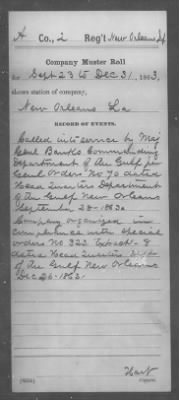 A Co., 2 Reg't New Orleans Inf
Company Muster Roll
for Sept 23 to Dec 31, 1863,
shows station of company,
New Orleans La
RECORD OF EVENTS.
Called into service by Maj
Genl Banks Commanding
Department of the Gulf per
Genl Orders No 70 dated
Head Quarters Department
of the Gulf New Orleans
September 28-1863.
Company organized in
compliance with special
orders No 323 Extract-8
dated Head Quarters Dept
of the Gulf New Orleans
Dec 26-1863.
Copyist.